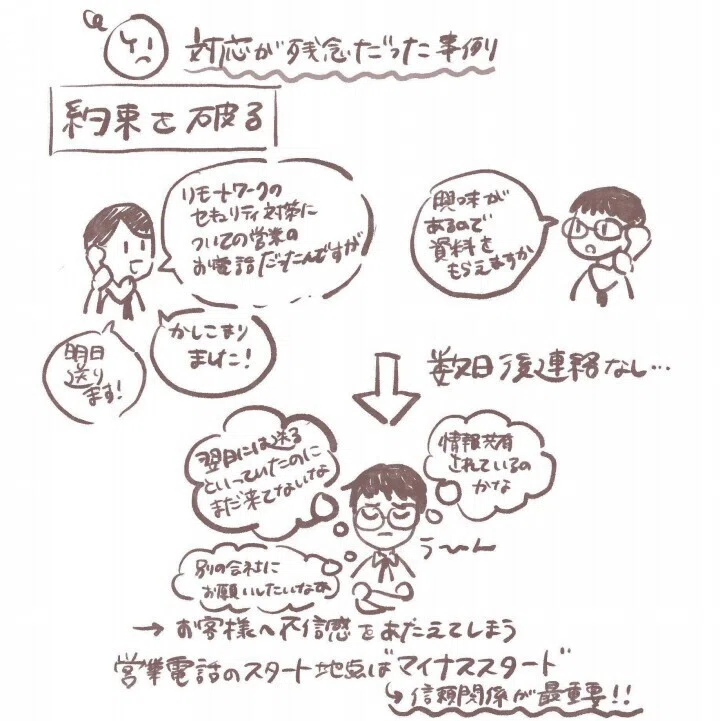 対応が残念だった事例
約束を破る
リモートワークの
セキュリティ対策に
ついての営業の
お電話だったんですが
興味が
あるので
資料を
もらえますか
かしこまり
ました!
明日
送り
ます!
数日後連絡なし…
翌日には送る
といっていたのに
まだ来てないな
情報共有
されているの
かな
う〜ん
別の会社に
お願いしたいなぁ
→ お客様へ不信感をあたえてしまう
営業電話のスタート地点は"マイナススタート"
↳信頼関係が最重要!!